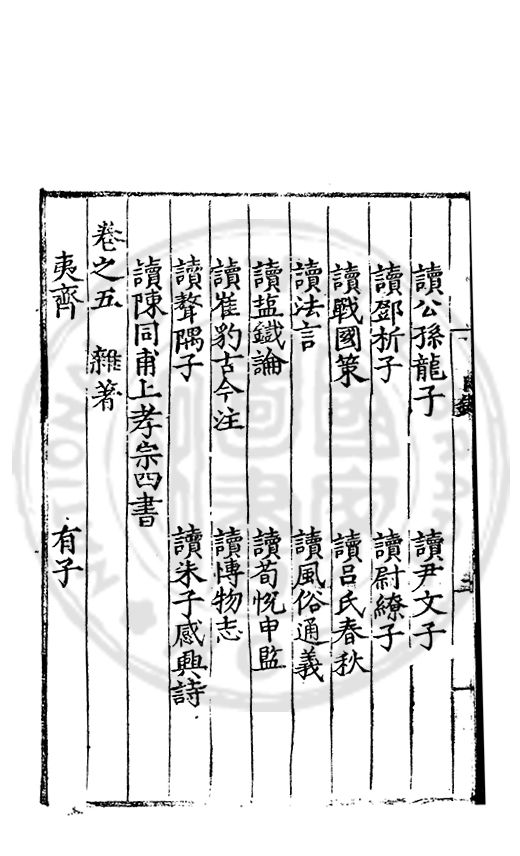 讀公孫龍子 讀尹文子
讀鄧析子 讀尉繚子
讀戰國策 讀呂氏春秋
讀法言 讀風俗通義
讀盐鐵論 讀荀悅申監
讀崔豹古今注 讀博物志
讀聱隅子 讀朱子感興詩
讀陳同甫上孝宗四書
卷之五 雜著
夷齊 有子